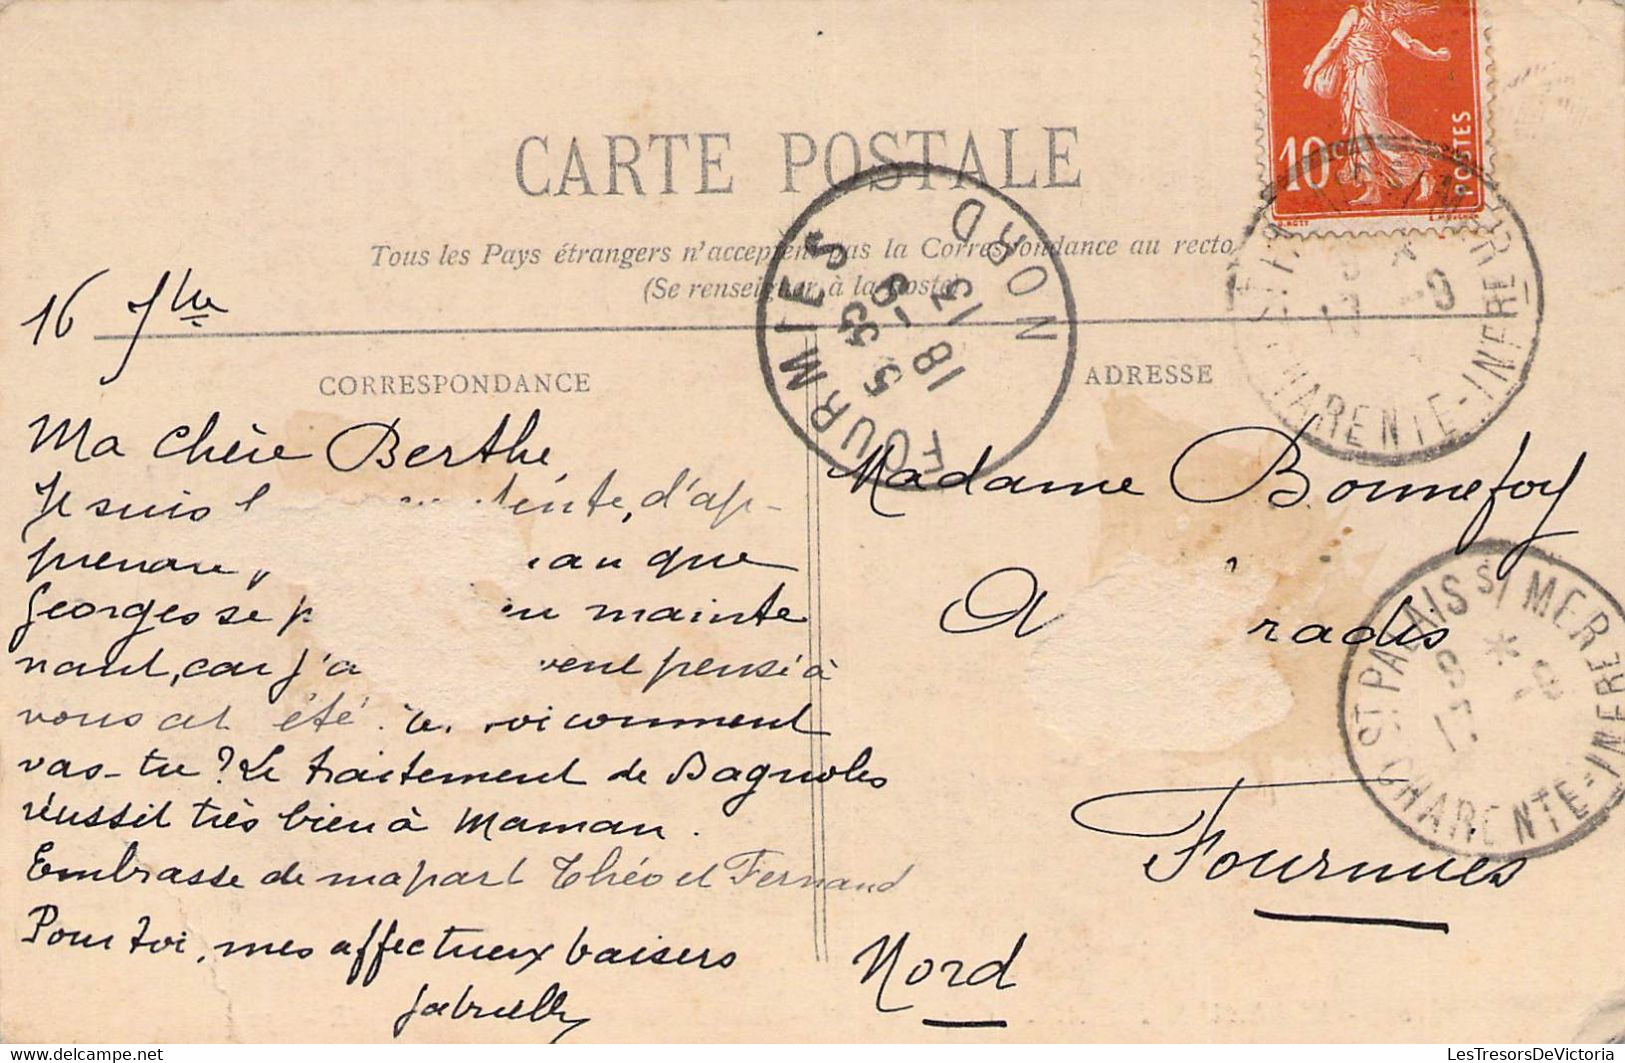 CARTE POSTALE
Tous les Pays étrangers n'acceptent pas la Correspondance au recto
(Se renseigner à la Poste)
10
POSTES
FOURMIES
NORD
5 35
18 - 9
13
ST PALAIS S/ MER
CHARENTE-INFRE
16 7bre
CORRESPONDANCE
Ma chère Berthe
Je suis d'ap-
prendre, que
Georges se mainte
nant, car j'a pensé à
vous cet été. comment
vas-tu? Le traitement de Bagnoles
réussit très bien à Maman.
Embrasse de ma part Théo et Fernand
Pour toi, mes affectueux baisers
Gabrielle
ADRESSE
Madame Bonnefoy
A radis
Fourmies
Nord
ST PALAIS S/ MER
CHARENTE-INFRE
LesTresorsDeVictoria